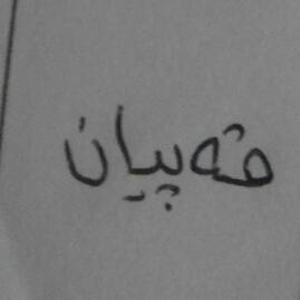 قەپیان